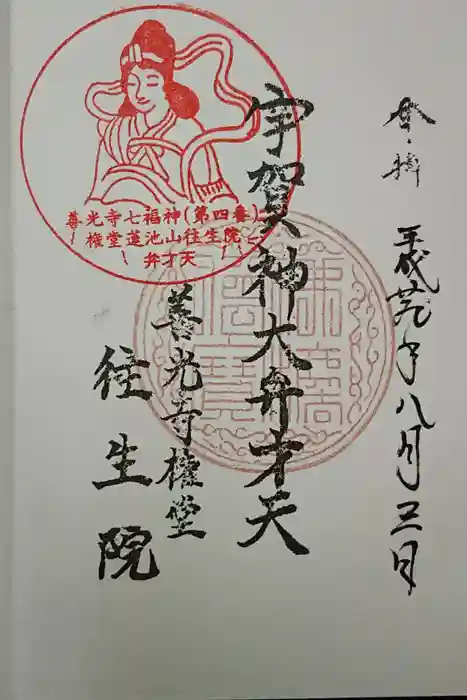 奉拝
平成廿九年八月三日
宇賀神大弁才天
善光寺権堂
往生院
善光寺七福神(第四番)
権堂蓮池山往生院
弁才天
佛法
寶